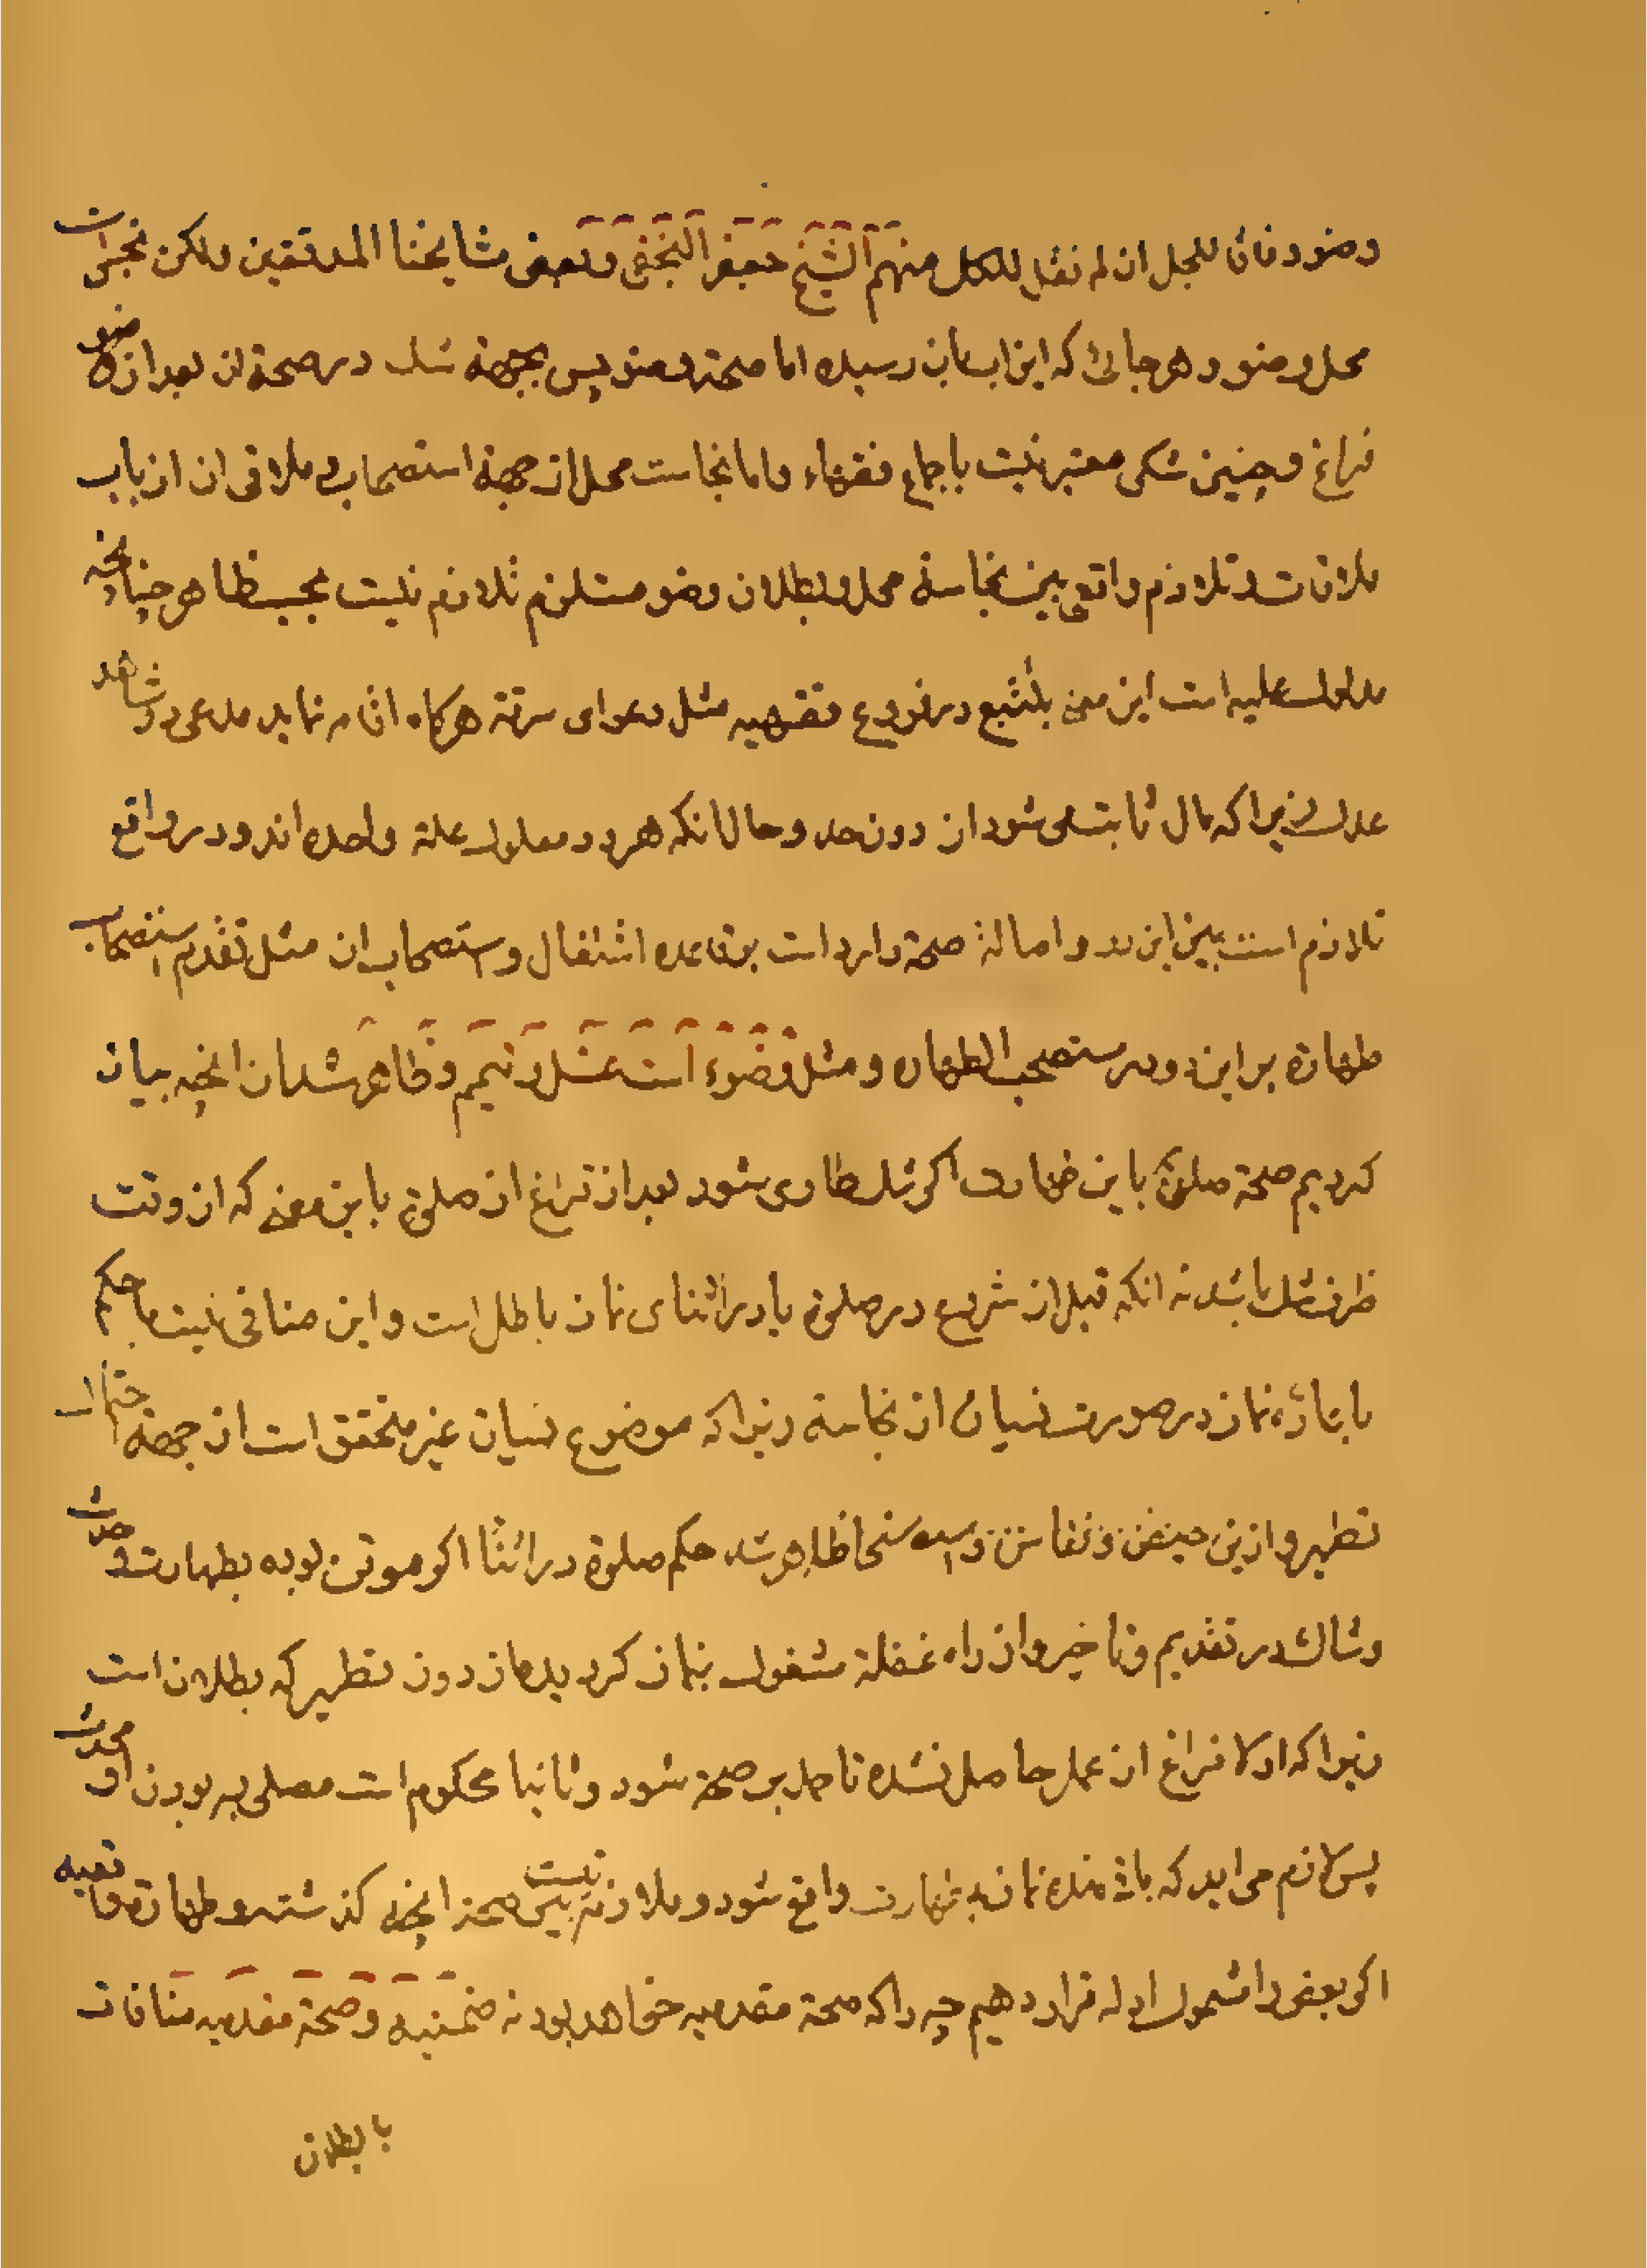 وضو وفاقا للجل ان لم نقل للكل منهم الشیخ جعفر النجفی وبعض مشایخنا المدققین ولکن نجس است
محل وضو و هر جائی که این اب بان رسیده اما صحة وضو پس بجهة شک در صحة ان بعد از وضو
فراغ و چنین شکی معتبر نیست باجماع فقهاء و اما نجاست محل از جهة استصحاب و ملاقی ان از باب
ملاقات و تلازم واقعی بین نجاسة محل و بطلان وضو مستلزم تلازم نیست بحسب ظاهر چنانچه
مدلول علیه است این معنی بتتبع در فروع فقهیه مثل دعوای سرقة هرگاه اقامه نماید مدعی دو شاهد
عدل زیرا که مال ثابت می شود از دون حد و حال انکه هر دو معلول علة واحده اند و در واقع
تلازم است بین این دو و اصالة صحة وارد است بر قاعده اشتغال و استصحاب ان مثل تقدم استصحاب
طهارة بر این دو در مستصحب الطهاره و مثل وضوء است غسل و تیمم و ظاهر شد از انچه بیان
کردیم صحة صلوة با این طهارت اگر شک طاری شود بعد از فراغ از صلوة باین معنی که ان وقت
ظرف شک باشد نه انکه قبل از شروع در صلوة یا در اثنای نماز باطل است و این منافی نیست با حکم
باعاده نماز در صورت نسیان از نجاسة زیرا که موضوع نسیان غیر متحقق است از جهة احتمال
تطهیر و ازین حیض و نفاس ظاهر شد حکم صلوة در اثنا اگر موقن بوده بطهارت و حدث
و شاک در تقدیم و تاخیر و از راه غفلة مشغول بنماز کردیده از دون تطهیر که بطلان است
زیرا که اولا فراغ از عمل حاصل نشده تا حمل بر صحة شود و ثانیا محکوم است مصلی به بودن او محدث
پس لازم می اید که باقی مانده نماز بی طهارت واقع شود و ملازمه نیست بین صحة انچه گذشته و طهارة واقعیه
اگر بعض را مشمول ادله قرار دهیم چه را که صحة مقدمیه خواهد بود نه ضمنیه و صحة مقدمیه منافات
با بطلان